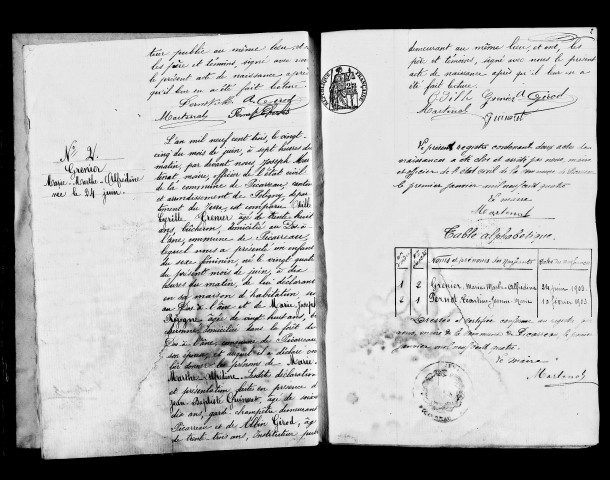 teur public au même lieu, et ont
les père et témoins, signé avec nous
le présent acte de naissance après
qu'il leur en a été fait lecture.
A Girod
Martinal
Nº 2.
Grenier
Marie-Marthe-Alfredine
née le 24 juin.
L'an mil neuf cent trois, le vingt-
cinq du mois de juin, à sept heures du
matin, par devant nous Joseph
maire, officier de l'état civil
de la commune de Picarreau, canton
et arrondissement de Poligny, dépar-
tement du Jura, est comparu
Cyrille Grenier âgé de trente huit
ans, bûcheron, domicilié au Pas à
l'âne, commune de Picarreau,
lequel nous a présenté un enfant
du sexe féminin, né le vingt quatre
du présent mois de juin, à
heures du matin, de lui déclarant
en sa maison d'habitation, sise
au Pas à l'âne et de Marie Joseph
âgée de vingt huit ans,
domiciliée dans la forêt du
Pas à l'âne, commune de Picarreau
son épouse, et auquel il a déclaré vou-
loir donner les prénoms de Marie
Marthe-Alfredine. Lesdites déclaration
et présentation faites en présence de
Jean Baptiste Guimont, âgé de soixante
dix ans, garde champêtre demeurant
Picarreau et de Albin Girod, âgé
de trente trois ans, Instituteur public
2
demeurant au même lieu, et ont, les
père et témoins, signé avec nous le présent
acte de naissance après qu'il leur en a
été fait lecture.
Grenier A Girod
Martinal
REPUBLIQUE FRANÇAISE
Le présent registre contenant deux actes de
naissances a été clos et arrêté par nous, maire
et officier de l'état civil de la commune de Picarreau
le premier janvier mil neuf cent quatre.
Le maire
Martinal
Table alphabétique.
Noms et prénoms des Dates des
1 2 Grenier Marie-Marthe-Alfredine 24 juin 1903.
2 1 Pernot Léontine-Jeanne-Marie 1903.
Dressée et certifiée conforme au registre
maire de la commune de Picarreau le premier
janvier mil neuf cent quatre.
Le maire
Martinal